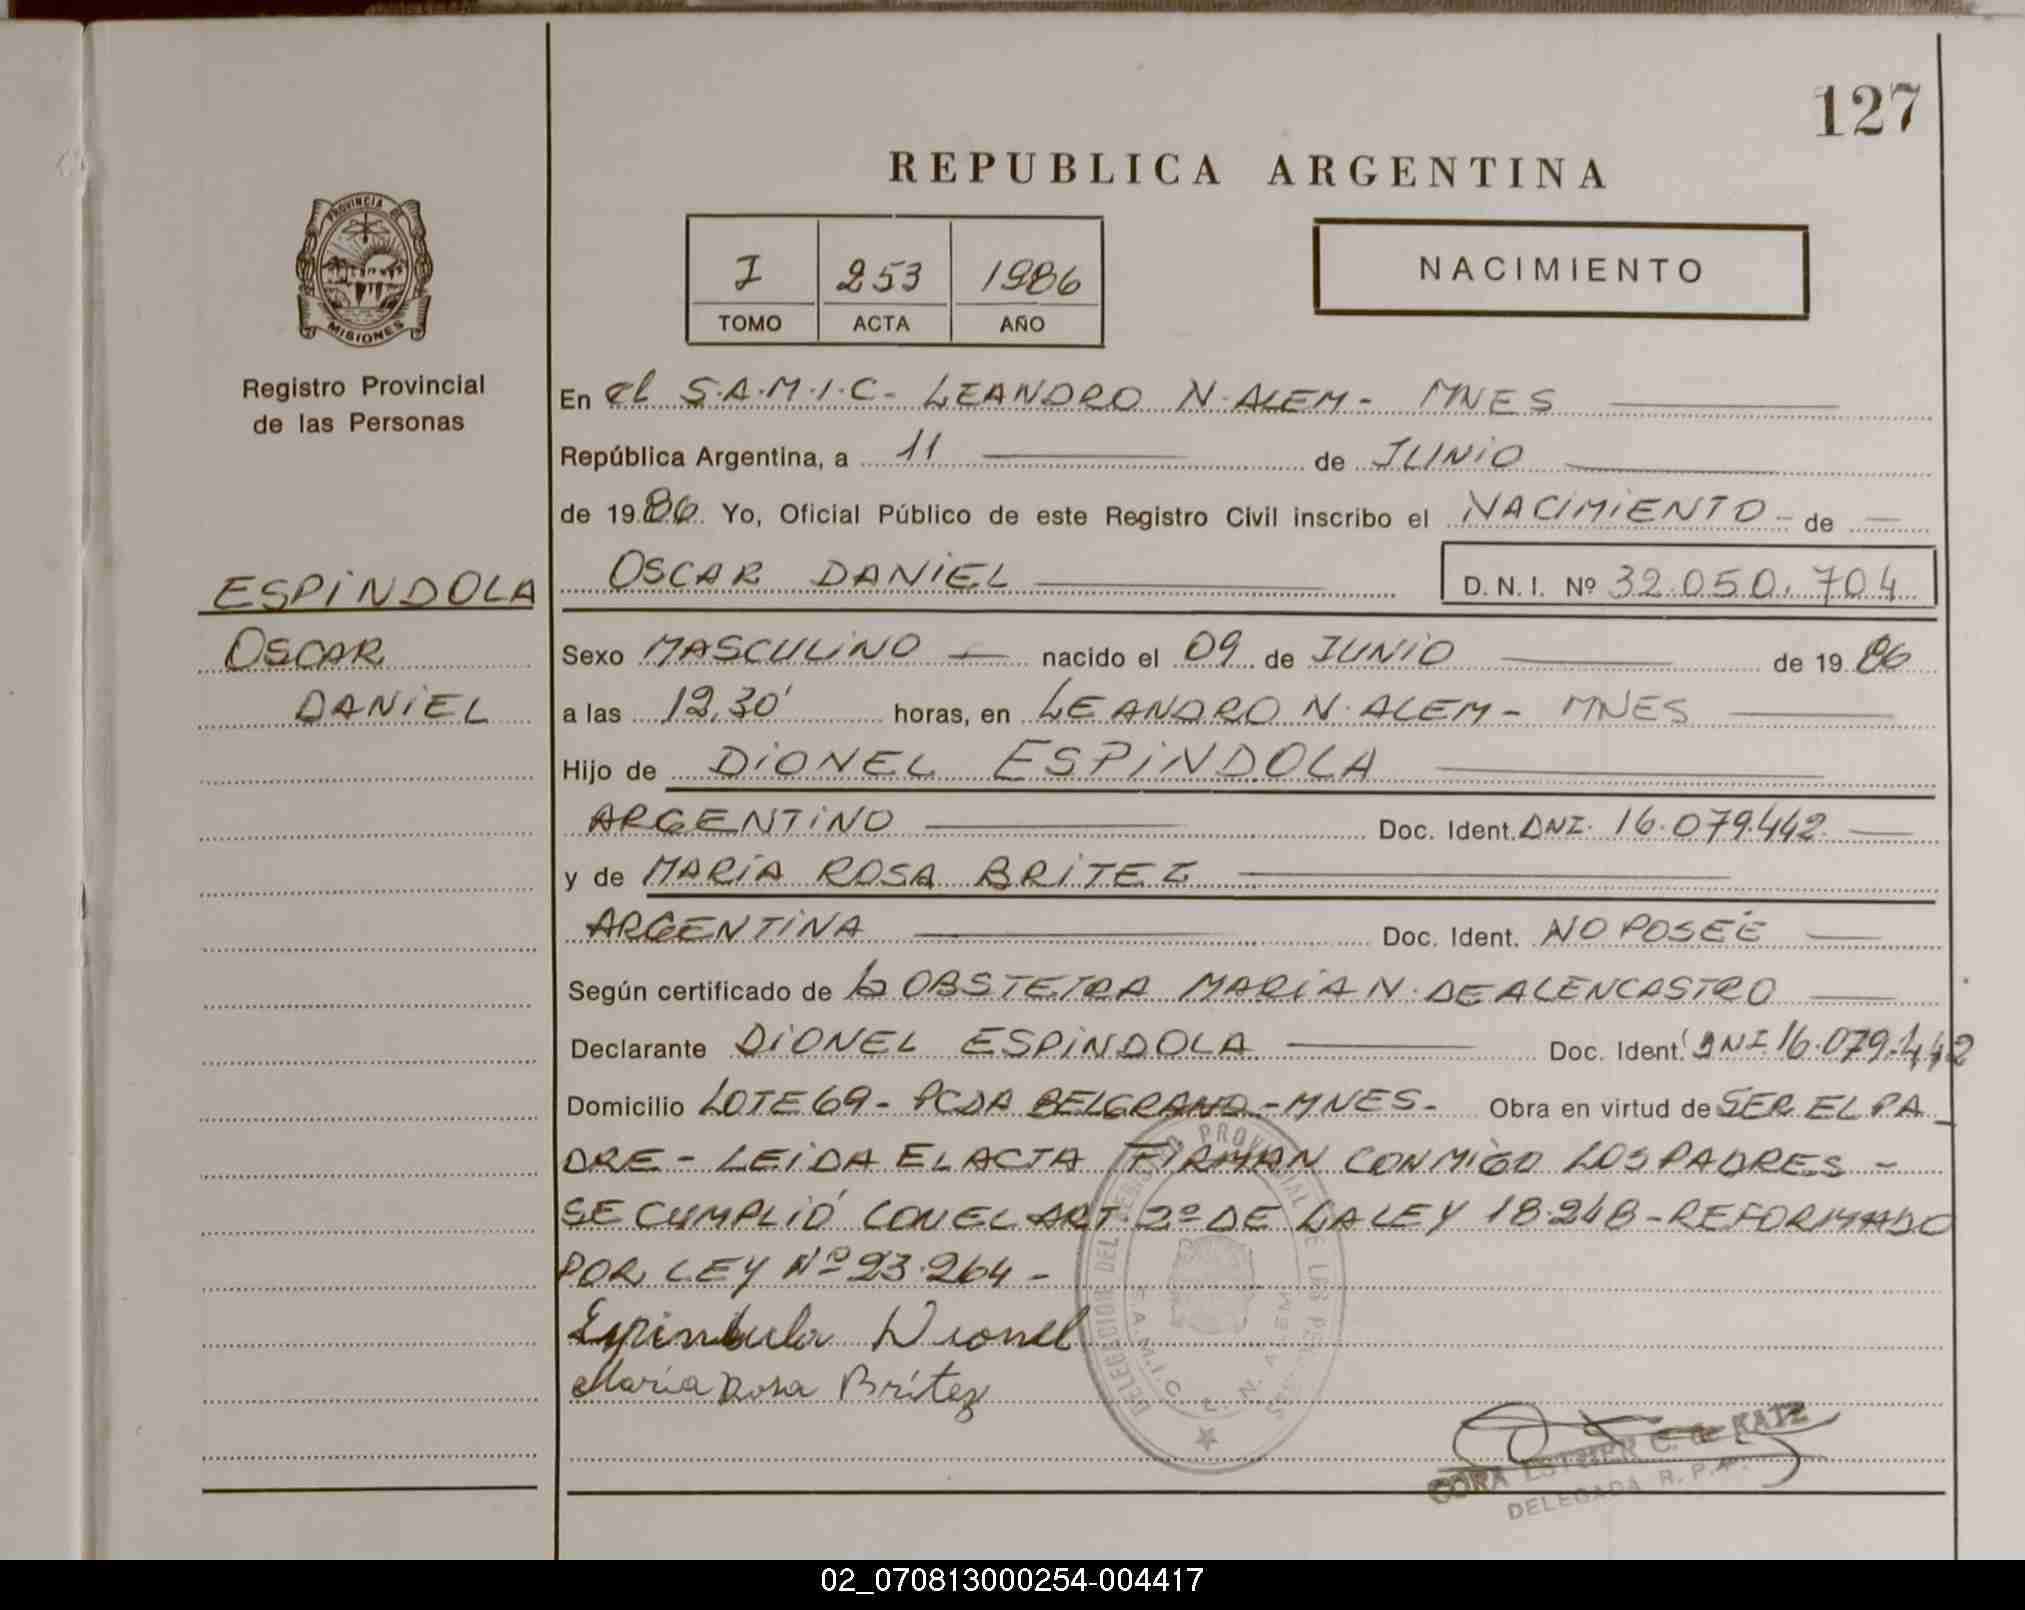 127
REPUBLICA ARGENTINA
PROVINCIA DE
MISIONES
I 253 1986
TOMO ACTA AÑO
NACIMIENTO
Registro Provincial
de las Personas
En el S.A.M.I.C- LEANDRO N. ALEM- MNES
República Argentina, a 11 de JUNIO
de 1986. Yo, Oficial Público de este Registro Civil inscribo el NACIMIENTO - de
ESPINDOLA
OSCAR
DANIEL
OSCAR DANIEL D. N. I. Nº 32.050.704
Sexo MASCULINO nacido el 09 de JUNIO de 19 86
a las 12,30' horas, en LEANDRO N. ALEM- MNES
Hijo de DIONEL ESPINDOLA
ARGENTINO Doc. Ident. DNI. 16.079.442
y de MARIA ROSA BRITEZ
ARGENTINA Doc. Ident. NO POSÉE
Según certificado de la OBSTETRA MARIA N. DE ALENCASTRO
Declarante DIONEL ESPINDOLA Doc. Ident. DNI 16.079.442
Domicilio LOTE 69 - PCDA BELGRANO - MNES- Obra en virtud de SER EL PA
DRE - LEIDA EL ACTA FIRMAN CONMIGO LOS PADRES -
SE CUMPLIÓ CON EL ART. 2º DE LA LEY 18.248 - REFORMADO
POR LEY Nº 23.264 -
Espindula Dionel
María Rosa Britez
CORA ESTHER C. de KATZ
DELEGADA R. P. P.
02_070813000254-004417